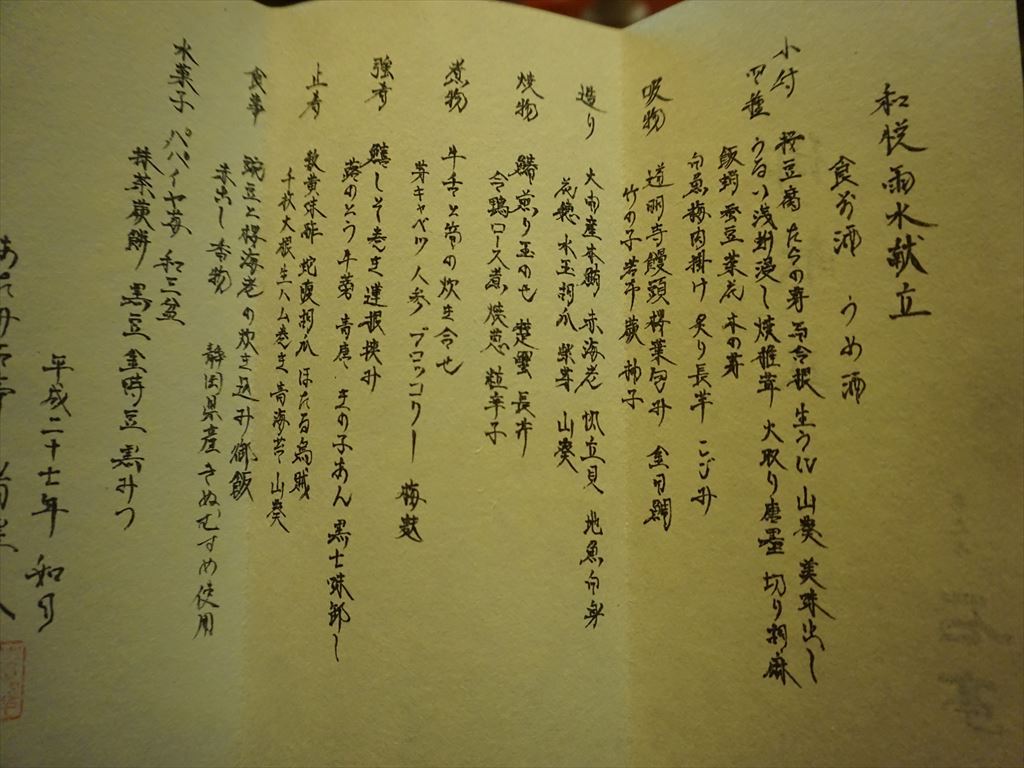 和悦雨水献立
食前酒 うめ酒
小付 桜豆腐 たらの芽 百合根 生うに 山葵 美味出し
四種 うるい浅利浸し 焼椎茸 火取り唐墨 切り胡麻
飯蛸 蚕豆 菜花 木の芽
白魚梅肉掛け 炙り長芋 こごみ
吸物 道明寺饅頭桜葉包み 金目鯛
竹の子 若布 蕨 柚子
造り 大間産本鮪 赤海老 帆立貝 地魚白身
花穂 水玉胡瓜 紫芽 山葵
焼物 鰆煎り玉のせ 楚蟹 長芋
合鴨ロース煮 焼葱 粒辛子
煮物 牛舌と筍の炊き合せ
芽キャベツ 人参 ブロッコリー 梅麩
強肴 鱚しそ巻き蓮根挟み
蕗のとう 牛蒡 青唐 きの子あん 黒七味卸し
止肴 散黄味酢 蛇腹胡瓜 ほたる烏賊
千枚大根生ハム巻き 青海苔 山葵
食事 豌豆と桜海老の炊き込み御飯
赤出し 香物 静岡県産きぬむすめ使用
水菓子 パパイヤ 苺 和三盆
抹茶蕨餅 黒豆 金時豆 黒みつ
平成二十七年 和月